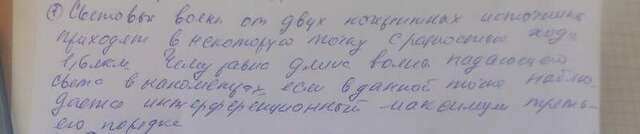 ① Световые волны от двух когерентных источника
приходят в некоторую точку с разностью хода
1,6мкм. Чему равна длина волны падающего
света в нанометрах, если в данной точке наблю-
дается интерференционный максимум треть-
его порядка